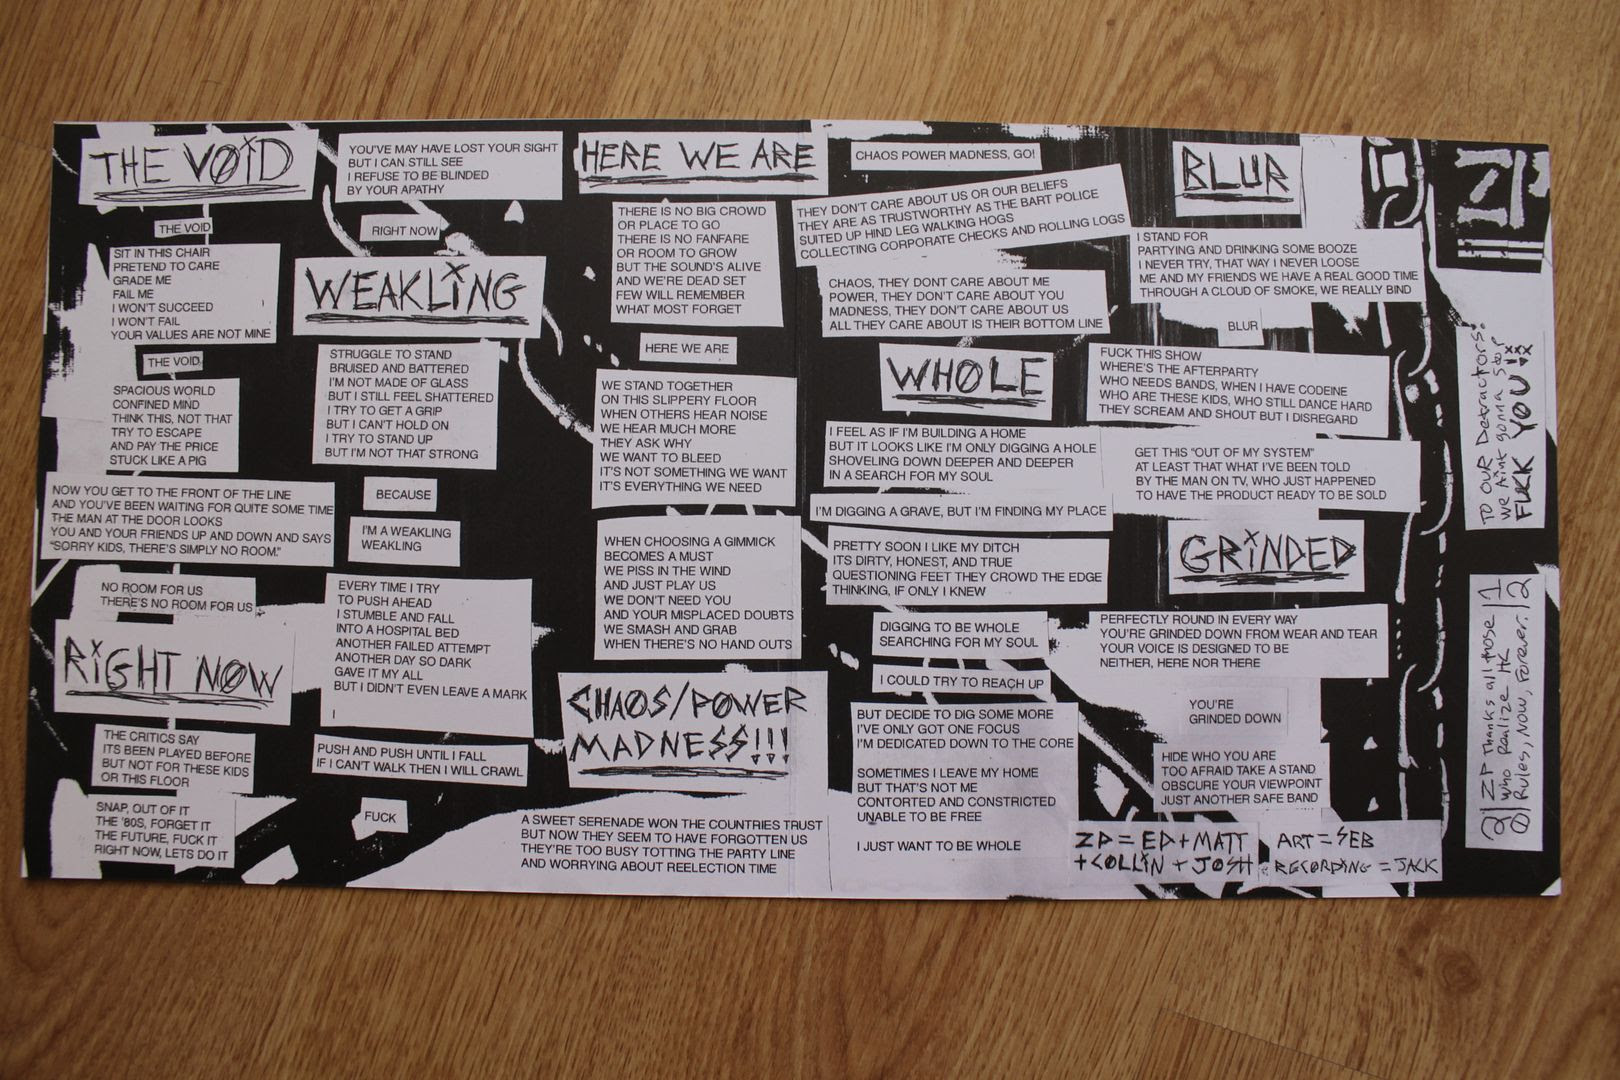 THE VOID
THE VOID
SIT IN THIS CHAIR
PRETEND TO CARE
GRADE ME
FAIL ME
I WON'T SUCCEED
I WON'T FAIL
YOUR VALUES ARE NOT MINE
THE VOID
SPACIOUS WORLD
CONFINED MIND
THINK THIS, NOT THAT
TRY TO ESCAPE
AND PAY THE PRICE
STUCK LIKE A PIG
NOW YOU GET TO THE FRONT OF THE LINE
AND YOU'VE BEEN WAITING FOR QUITE SOME TIME
THE MAN AT THE DOOR LOOKS
YOU AND YOUR FRIENDS UP AND DOWN AND SAYS
"SORRY KIDS, THERE'S SIMPLY NO ROOM."
NO ROOM FOR US
THERE'S NO ROOM FOR US
RIGHT NOW
THE CRITICS SAY
ITS BEEN PLAYED BEFORE
BUT NOT FOR THESE KIDS
OR THIS FLOOR
SNAP, OUT OF IT
THE '80S, FORGET IT
THE FUTURE, FUCK IT
RIGHT NOW, LETS DO IT
YOU'VE MAY HAVE LOST YOUR SIGHT
BUT I CAN STILL SEE
I REFUSE TO BE BLINDED
BY YOUR APATHY
RIGHT NOW
WEAKLING
STRUGGLE TO STAND
BRUISED AND BATTERED
I'M NOT MADE OF GLASS
BUT I STILL FEEL SHATTERED
I TRY TO GET A GRIP
BUT I CAN'T HOLD ON
I TRY TO STAND UP
BUT I'M NOT THAT STRONG
BECAUSE
I'M A WEAKLING
WEAKLING
EVERY TIME I TRY
TO PUSH AHEAD
I STUMBLE AND FALL
INTO A HOSPITAL BED
ANOTHER FAILED ATTEMPT
ANOTHER DAY SO DARK
GAVE IT MY ALL
BUT I DIDN'T EVEN LEAVE A MARK
I
PUSH AND PUSH UNTIL I FALL
IF I CAN'T WALK THEN I WILL CRAWL
FUCK
HERE WE ARE
THERE IS NO BIG CROWD
OR PLACE TO GO
THERE IS NO FANFARE
OR ROOM TO GROW
BUT THE SOUND'S ALIVE
AND WE'RE DEAD SET
FEW WILL REMEMBER
WHAT MOST FORGET
HERE WE ARE
WE STAND TOGETHER
ON THIS SLIPPERY FLOOR
WHEN OTHERS HEAR NOISE
WE HEAR MUCH MORE
THEY ASK WHY
WE WANT TO BLEED
IT'S NOT SOMETHING WE WANT
IT'S EVERYTHING WE NEED
WHEN CHOOSING A GIMMICK
BECOMES A MUST
WE PISS IN THE WIND
AND JUST PLAY US
WE DON'T NEED YOU
AND YOUR MISPLACED DOUBTS
WE SMASH AND GRAB
WHEN THERE'S NO HAND OUTS
CHAOS/POWER
MADNESS!!!
A SWEET SERENADE WON THE COUNTRIES TRUST
BUT NOW THEY SEEM TO HAVE FORGOTTEN US
THEY'RE TOO BUSY TOTTING THE PARTY LINE
AND WORRYING ABOUT REELECTION TIME
CHAOS POWER MADNESS, GO!
THEY DON'T CARE ABOUT US OR OUR BELIEFS
THEY ARE AS TRUSTWORTHY AS THE BART POLICE
SUITED UP HIND LEG WALKING HOGS
COLLECTING CORPORATE CHECKS AND ROLLING LOGS
CHAOS, THEY DONT CARE ABOUT ME
POWER, THEY DON'T CARE ABOUT YOU
MADNESS, THEY DON'T CARE ABOUT US
ALL THEY CARE ABOUT IS THEIR BOTTOM LINE
WHOLE
I FEEL AS IF I'M BUILDING A HOME
BUT IT LOOKS LIKE I'M ONLY DIGGING A HOLE
SHOVELING DOWN DEEPER AND DEEPER
IN A SEARCH FOR MY SOUL
I'M DIGGING A GRAVE, BUT I'M FINDING MY PLACE
PRETTY SOON I LIKE MY DITCH
ITS DIRTY, HONEST, AND TRUE
QUESTIONING FEET THEY CROWD THE EDGE
THINKING, IF ONLY I KNEW
DIGGING TO BE WHOLE
SEARCHING FOR MY SOUL
I COULD TRY TO REACH UP
BUT DECIDE TO DIG SOME MORE
I'VE ONLY GOT ONE FOCUS
I'M DEDICATED DOWN TO THE CORE
SOMETIMES I LEAVE MY HOME
BUT THAT'S NOT ME
CONTORTED AND CONSTRICTED
UNABLE TO BE FREE
I JUST WANT TO BE WHOLE
BLUR
I STAND FOR
PARTYING AND DRINKING SOME BOOZE
I NEVER TRY, THAT WAY I NEVER LOOSE
ME AND MY FRIENDS WE HAVE A REAL GOOD TIME
THROUGH A CLOUD OF SMOKE, WE REALLY BIND
BLUR
FUCK THIS SHOW
WHERE'S THE AFTERPARTY
WHO NEEDS BANDS, WHEN I HAVE CODEINE
WHO ARE THESE KIDS, WHO STILL DANCE HARD
THEY SCREAM AND SHOUT BUT I DISREGARD
GET THIS "OUT OF MY SYSTEM"
AT LEAST THAT WHAT I'VE BEEN TOLD
BY THE MAN ON TV, WHO JUST HAPPENED
TO HAVE THE PRODUCT READY TO BE SOLD
GRINDED
PERFECTLY ROUND IN EVERY WAY
YOU'RE GRINDED DOWN FROM WEAR AND TEAR
YOUR VOICE IS DESIGNED TO BE
NEITHER, HERE NOR THERE
YOU'RE
GRINDED DOWN
HIDE WHO YOU ARE
TOO AFRAID TAKE A STAND
OBSCURE YOUR VIEWPOINT
JUST ANOTHER SAFE BAND
ZP = ED + MATT
+ COLLIN + JOSH
ART = SEB
RECORDING = JACK
ZP
TO OUR Detractors:
We Aint gonna Stop
FUCK YOU
ZP Thanks all those
who Realize HK
Rules, Now, Forever.
2012